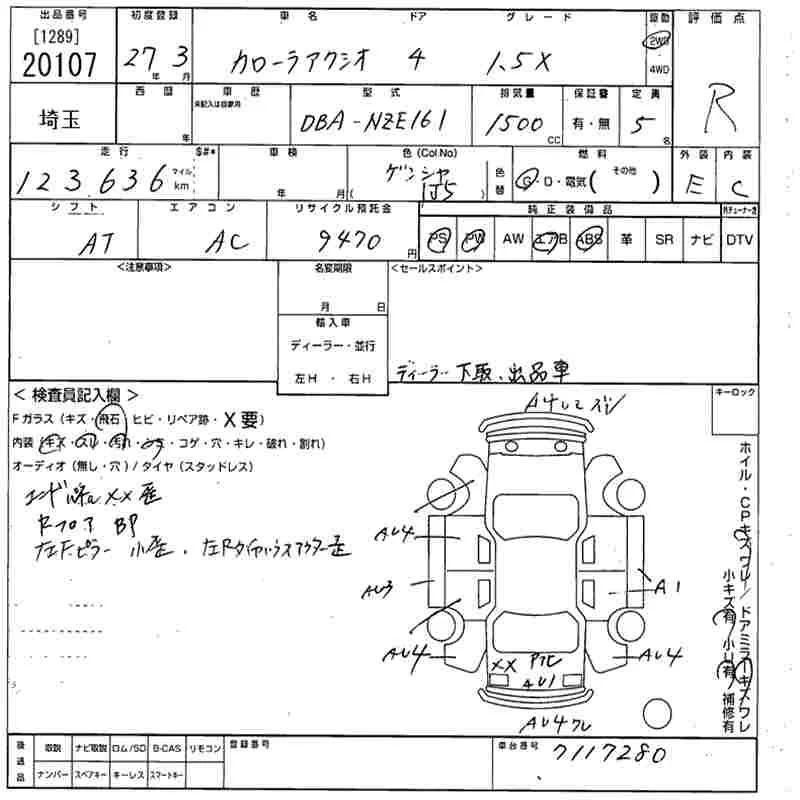 出品番号 初度登録 車名 ドア グレード 駆動 評価点
[1289]
20107 27年 3月 カローラアクシオ 4 1.5X 2WD 4WD R
西暦 車歴 型式 排気量 保証書 定員
未記入は自家用
埼玉 年 DBA-NZE161 1500 CC 有・無 5名
走行 $#* 車検 色(Col.No) 燃料 外装 内装
123,636 マイル km 年 月( ゲンシャ ) 色替 G・D・電気( その他 ) E C
シフト エアコン リサイクル預託金 純正装備品
AT AC 9470円 PS PW AW エアB ABS 革 SR ナビ DTV
<注意事項> 名変期限 <セールスポイント>
月 日
輸入車
ディーラー・並行
左H・右H ディーラー下取、出品車
<検査員記入欄> キーロック
Fガラス(キズ・飛石 ヒビ・リペア跡・X要)
内装(キズ・スレ・汚れ・コゲ・穴・キレ・破れ・割れ)
オーディオ(無し・穴)/タイヤ(スタッドレス)
XX歪
RフロアBP
左Fピラー小歪、左Rタイヤハウスアウター歪
AU4
AU3
A1
AU4
AU4
XX
AU1
AU4ワレ
ホイル・CPキズワレ/ドアミラーキズワレ
小キズ有 小U有 補修有
後送品 取説 ナビ取説 ロム/SD B-CAS リモコン 登録番号 車台番号
ナンバー スペアキー キーレス スマートキー 7117280